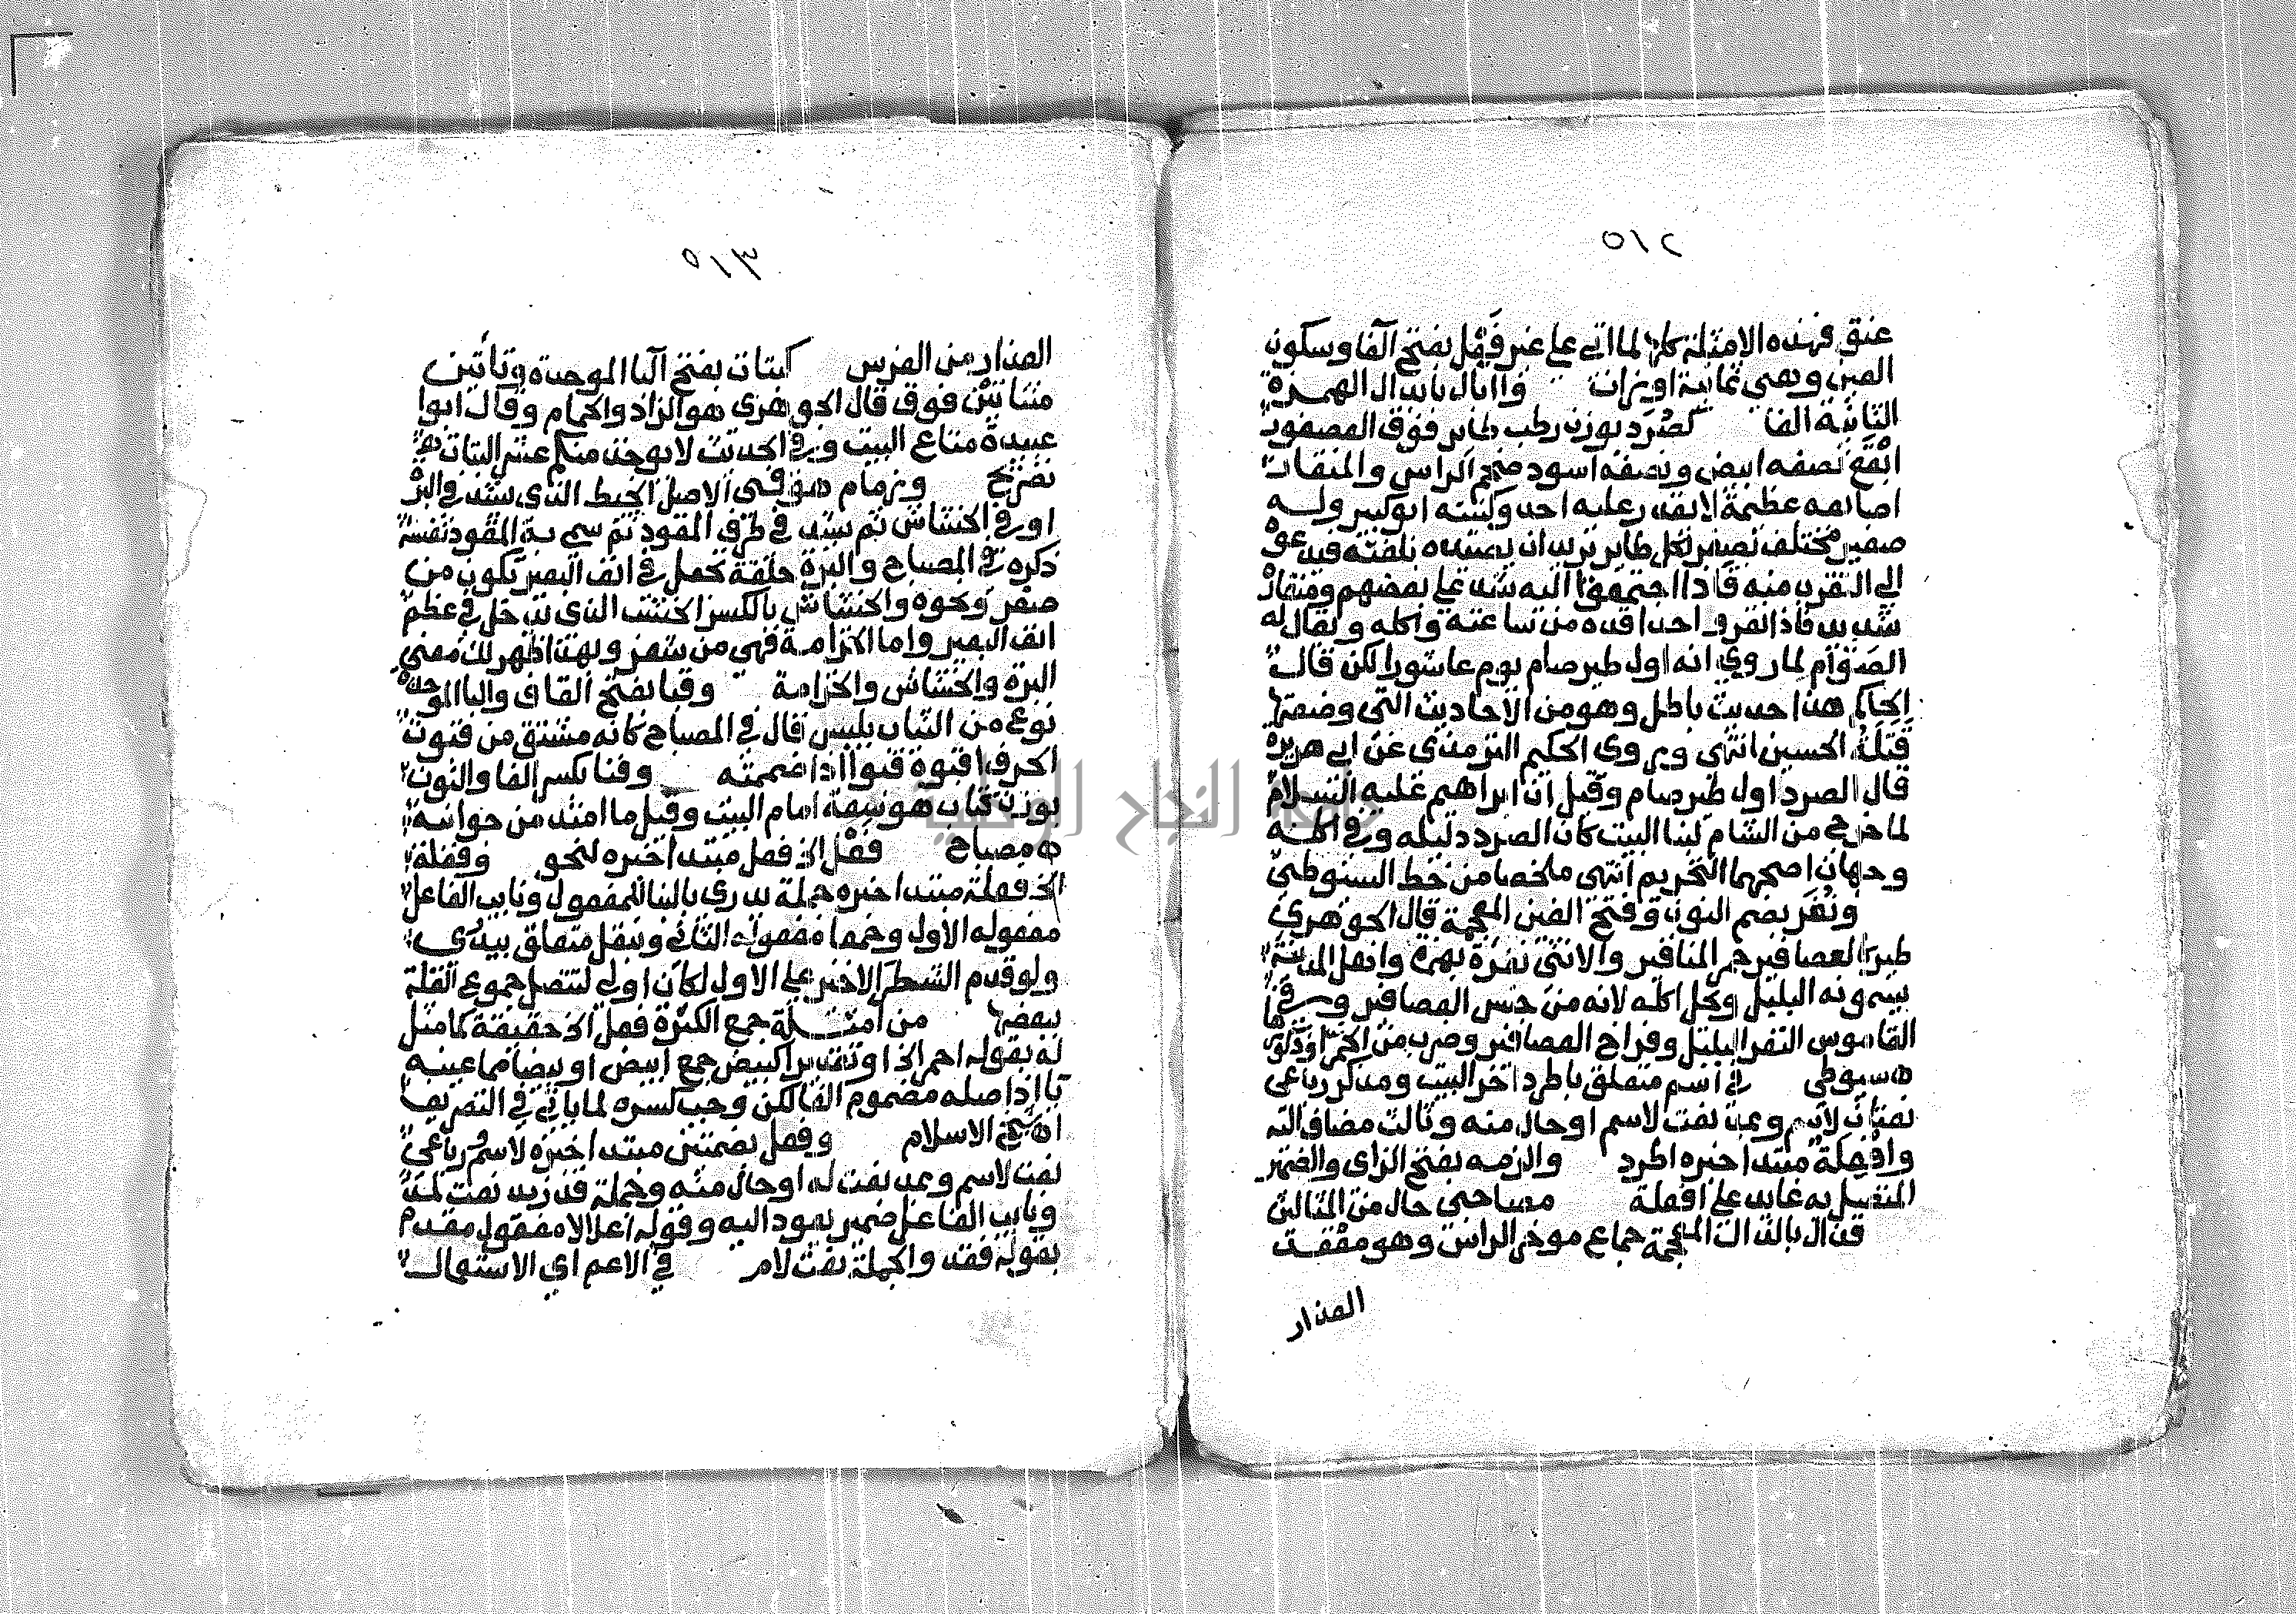 ٥١٢
عنق فهذه الامثلة كلها لما اتى على غير فَعْل بفتح الفا وسكون
العين وهي ثمانية اوزان واابال بابدال الهمزة
الثانية الفا كصُرَد بوزن رطب طاير فوق العصفور
ابقع نصفه ابيض ونصفه اسود ضخم الراس والمنقار
اصابعه عظيمة لا يقدر عليه احد وكنيته ابو كبير وله
صفير مختلف يصفر لكل طاير يريد ان يصيده بلغته فيدعوه
الى التقرب منه فاذا اجتمعوا اليه شد على بعضهم ومنقاره
شديد فاذا نقر واحدا قده من ساعته واكله ويقال له
الصوام لما روي انه اول طير صام يوم عاشورا لكن قال
الحاكم هذا حديث باطل وهو من الاحاديث التي وضعتها
قَتَلَةُ الحسين انتهى وروى الحكيم الترمذي عن ابي هريرة
قال الصرد اول طير صام وقيل ان ابراهيم عليه السلام
لما خرج من الشام لبنا البيت كان الصرد دليله وفي اكله
وجهان اصحهما التحريم انتهى ملخصا من خط السيوطي
ونُغَر بضم النون وفتح الغين المعجمة قال الجوهري
طير كالعصافير حمر المناقير والانثى نغرة بهزة واهل المدينة
يسمونه البلبل ويحل اكله لانه من جنس العصافير وفي
القاموس النغر البلبل وفراخ العصافير وضرب من الحمر
ه سيوطي في اسم متعلق باطرد اخر البيت ومذكر رباعي
نعتان لاسم وعد نعت لاسم او حال منه وثالث مضاف اليه
وافعلة مبتدا خبره اطرد والزمه بفتح الزاى والضمير
المتصل به عايد على افعلة مصاحبي حال من المثالين
قذال بالذال المعجمة جماع موخر الراس وهو معقد
العذار
٥١٣
العذار من الفرس كبتات بفتح البا الموحدة وتاتين
مثناتين فوق قال الجوهري هو الزاد والجهام وقال ابوا
عبيدة متاع البيت وفي الحديث لا يوخذ منكم عشر البتات ه
تصريح وزمام هو في الاصل الخيط الذي يشد في البرة
او في الخشاش ثم يشد في طرف المقود ثم سمي به المقود نفسه
ذكره في المصباح والبرة حلقة تجعل في انف البعير تكون من
صفر ونحوه والخشاش بالكسر الخشب الذي يدخل في عظم
انف البعير واما الخزامة فهي من شعر وبهذا ظهر لك معنى
البرة والخشاش والخزامة وقبا بفتح القاف والبا الموحدة
نوع من الثياب يلبس قال في المصباح كانه مشتق من قبوت
الحرف اقبوه قبوا اذا ضممته وفنا بكسر الفا والنون
بوزن كتاب هو سعة امام البيت وقيل ما امتد من جوانبه
ه مصباح فُعْل الخ فعل مبتدا خبره لنحو وفعلة
الخ فعلة مبتدا خبره جملة يدرى بالبنا للمفعول ونايب الفاعل
مفعوله الاول وجمعا مفعوله الثاني وبنقل متعلق بيدرى
ولو قدم الشطر الاخير على الاول لكان اولى لتتصل جموع القلة
ببعضها من امثلة جمع الكثرة فعل الخ حقيقة كما مثل
له بقوله احمر الخ او تقديرا كبيض جمع ابيض او بيضا مما عينه
يا اذ اصله مضموم الفا لكن وجب كسره لما ياتي في التصريف
اهـ شيخ الاسلام وفعل بضمتين مبتدا خبره لاسم رباعي
نعت لاسم وعد نعت له او حال منه وجملة قد زيد نعت لمد
ونايب الفاعل ضمير يعود اليه وقوله اعلالا مفعول مقدم
بقوله فقد والجملة نعت لام في الاعم اي الاستعمال